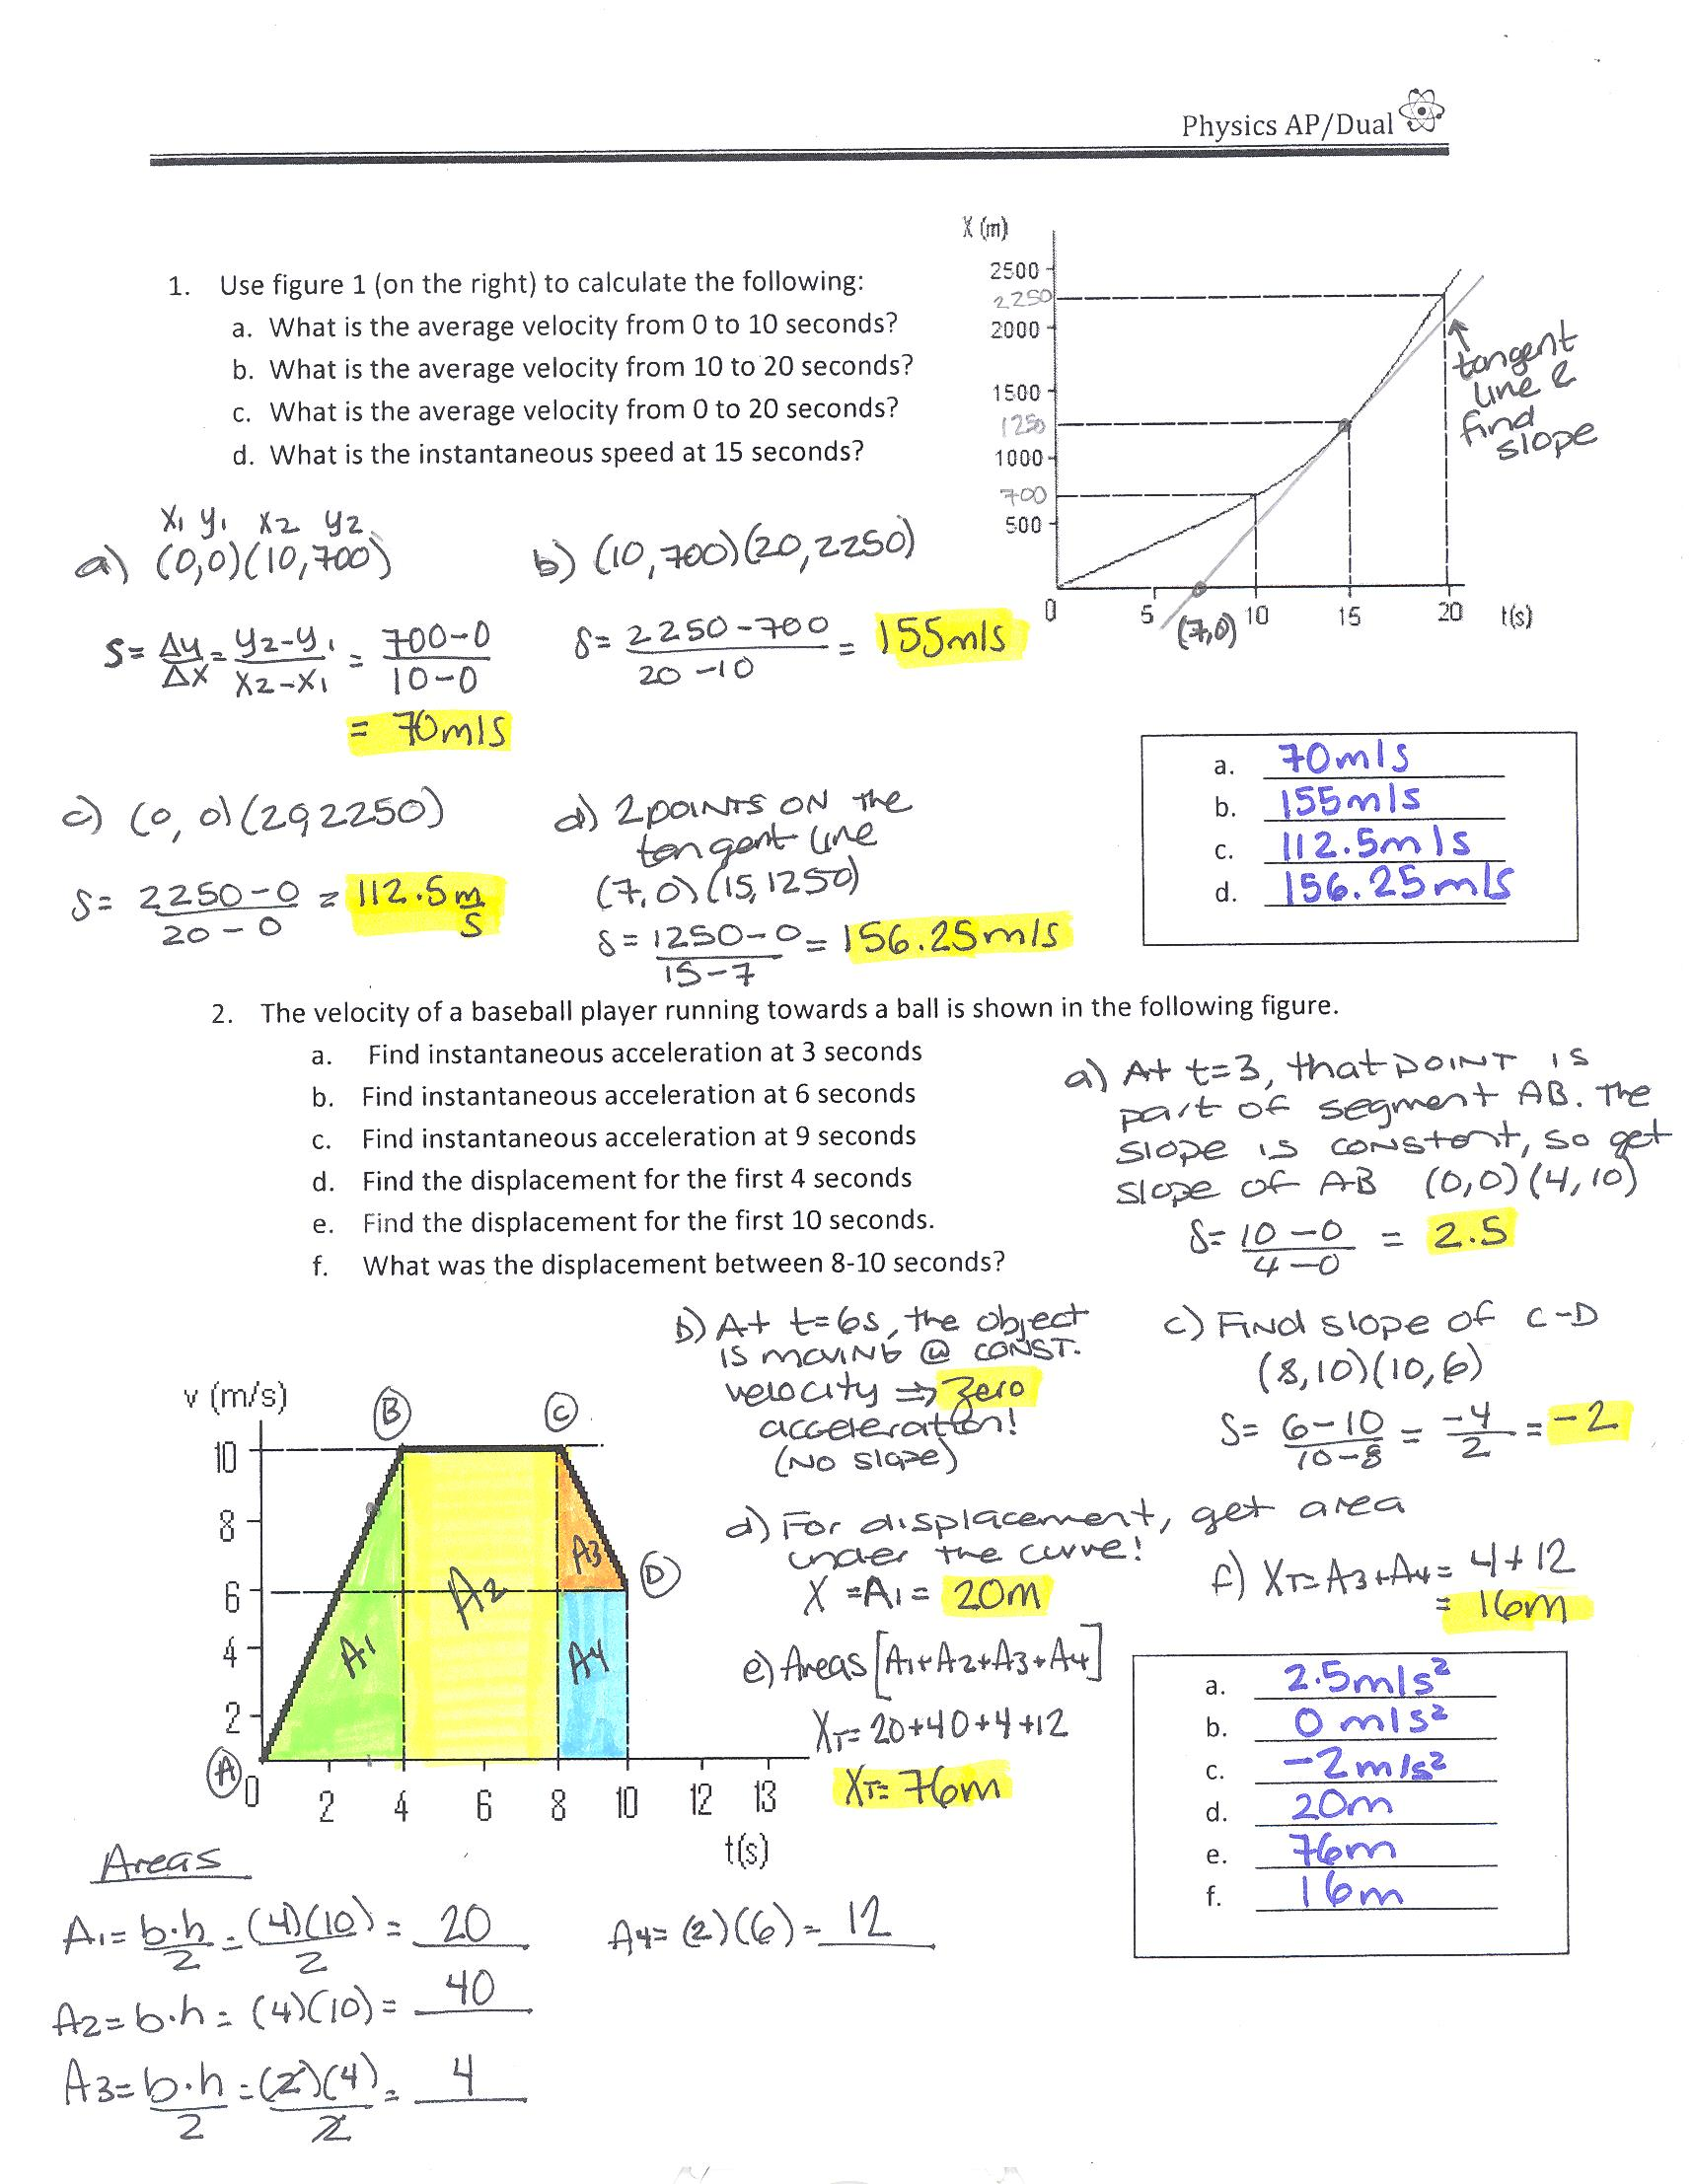 Physics AP/Dual
1. Use figure 1 (on the right) to calculate the following:
a. What is the average velocity from 0 to 10 seconds?
b. What is the average velocity from 10 to 20 seconds?
c. What is the average velocity from 0 to 20 seconds?
d. What is the instantaneous speed at 15 seconds?
X (m)
2500
2250
2000
1500
1250
1000
700
500
0 5 10 15 20 t(s)
(7,0)
tangent
line &
find
slope
X1 y1 X2 y2
a) (0,0)(10,700)
S= Δy/Δx = y2-y1/x2-x1 = 700-0/10-0
= 70m/s
b) (10,700)(20,2250)
S= 2250-700/20-10 = 155m/s
c) (0,0)(20,2250)
S= 2250-0/20-0 = 112.5 m/s
d) 2 points on the
tangent line
(7,0)(15,1250)
S= 1250-0/15-7 = 156.25m/s
a. 70m/s
b. 155m/s
c. 112.5m/s
d. 156.25m/s
2. The velocity of a baseball player running towards a ball is shown in the following figure.
a. Find instantaneous acceleration at 3 seconds
b. Find instantaneous acceleration at 6 seconds
c. Find instantaneous acceleration at 9 seconds
d. Find the displacement for the first 4 seconds
e. Find the displacement for the first 10 seconds.
f. What was the displacement between 8-10 seconds?
a) At t=3, that point is
part of segment AB. The
slope is constant, so get
slope of AB (0,0)(4,10)
S= 10-0/4-0 = 2.5
b) At t=6s, the object
is moving @ const.
velocity ⇒ Zero
acceleration!
(No slope)
c) Find slope of C-D
(8,10)(10,6)
S= 6-10/10-8 = -4/2 = -2
d) For displacement, get area
under the curve!
X =A1= 20m
e) Areas [A1+A2+A3+A4]
XT= 20+40+4+12
XT= 76m
f) XT=A3+A4= 4+12
= 16m
v (m/s)
B C
10
8
6
4
2
A D
A1 A2 A3 A4
0 2 4 6 8 10 12 13
t(s)
a. 2.5m/s²
b. 0 m/s²
c. -2m/s²
d. 20m
e. 76m
f. 16m
Areas
A1= b·h/2 = (4)(10)/2 = 20
A2= b·h = (4)(10) = 40
A3= b·h/2 = (2)(4)/2 = 4
A4= (2)(6) = 12